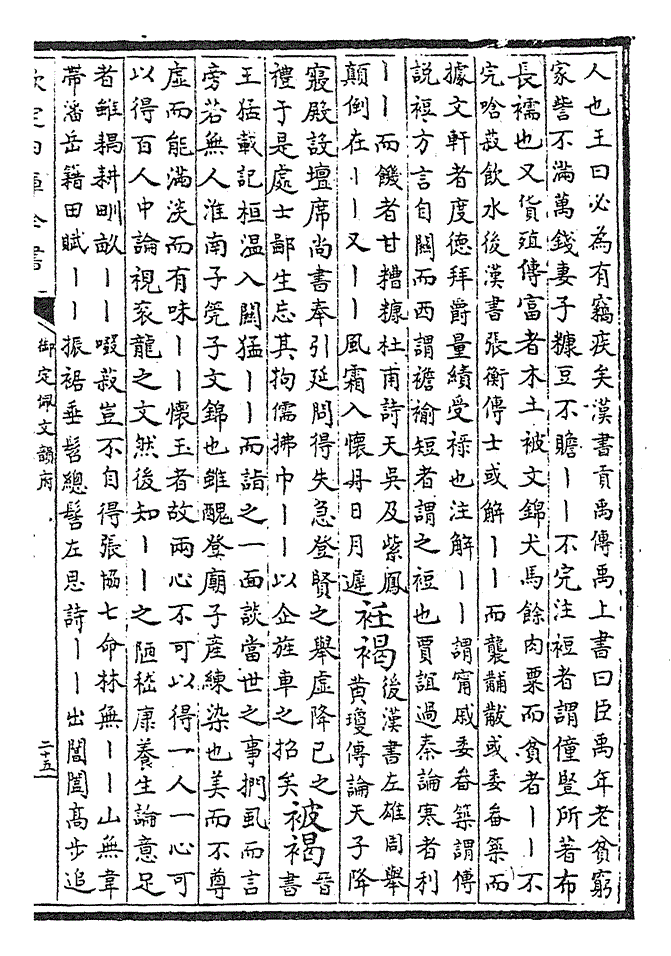 人也王曰必為有竊疾矣漢書貢禹傳禹上書曰臣禹年老貧窮
家訾不滿萬錢妻子糠豆不贍丨丨不完注裋者謂僮豎所著布
長襦也又貨殖傳富者木土被文錦犬馬餘肉粟而貧者丨丨不
完唅菽飲水後漢書張衡傳士或解丨丨而襲黼黻或委臿築而
據文軒者度徳拜爵量績受禄也注解丨丨謂甯戚委臿築謂傅
説裋方言自關而西謂襜褕短者謂之裋也賈誼過秦論寒者利
丨丨而饑者甘糟糠杜甫詩天吳及紫鳳
顛倒在丨丨又丨丨風霜入懐丹日月遲
袵褐
後漢書左雄周舉
黄瓊傳論天子降
寢殿設壇席尚書奉引延問得失急登賢之舉虚降已之
禮于是處士鄙生忘其拘儒拂巾丨丨以企旌車之招矣
被褐
晉
書
王猛載記桓温入關猛丨丨而詣之一面談當世之事捫虱而言
旁若無人淮南子筦子文錦也雖醜登廟子産練染也美而不尊
虚而能滿淡而有味丨丨懐玉者故兩心不可以得一人一心可
以得百人中論視衮龍之文然後知丨丨之陋嵇康養生論意足
者雖耦耕甽畝丨丨啜菽豈不自得張協七命林無丨丨山無韋
帶潘岳籍田賦丨丨振裾垂髫總髻左思詩丨丨出閶闔髙步追
欽定四庫全書
御定佩文韻府
二十五